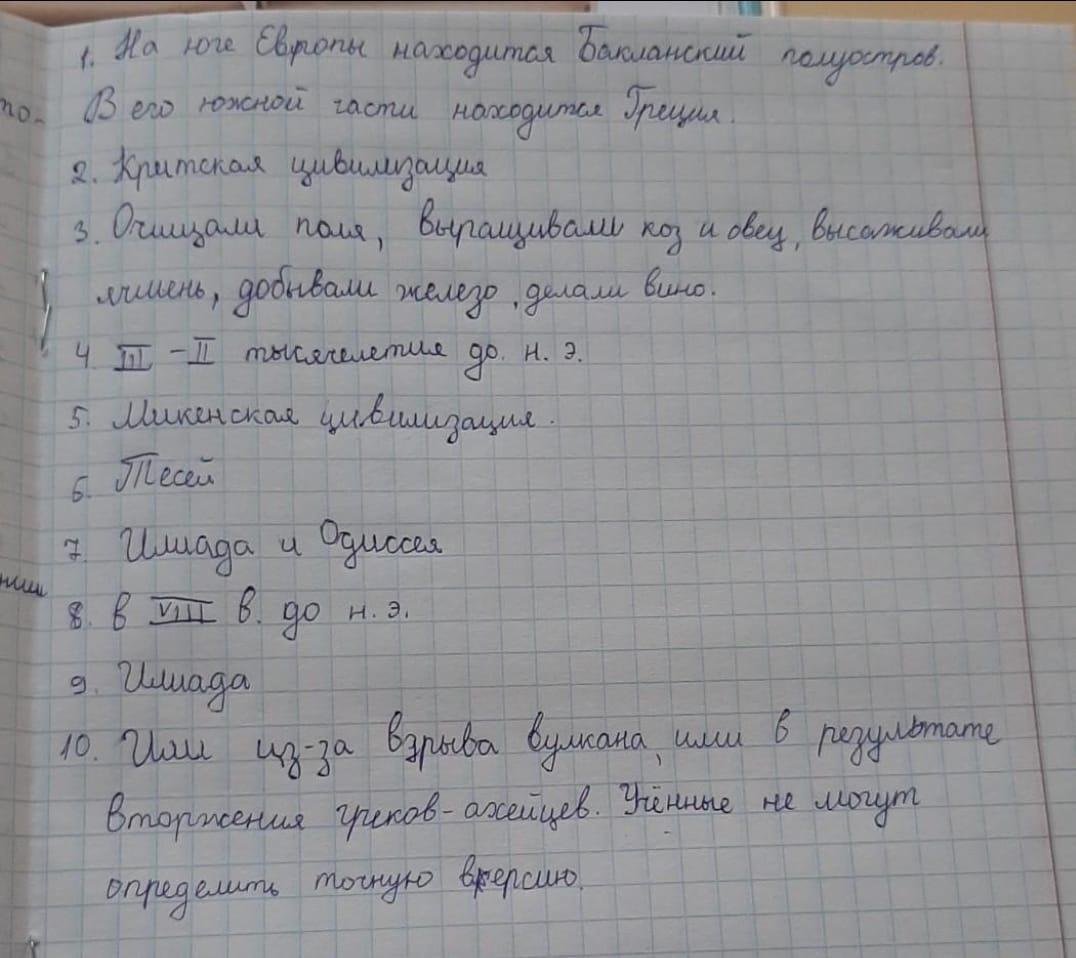 1. На юге Европы находится Бакланский полуостров.
то-
В его южной части находится Греция.
2. Критская цивилизация
3. Очищали поля, выращивали коз и овец, высаживали
ячмень, добывали железо, делали вино.
4. III - II тысячелетия до. н. э.
5. Микенская цивилизация.
6. Тесей
7. Илиада и Одиссея
8. в VIII в. до н. э.
9. Илиада
10. Или из-за взрыва вулкана, или в результате
вторжения греков-ахейцев. Учённые не могут
определить точную версию.